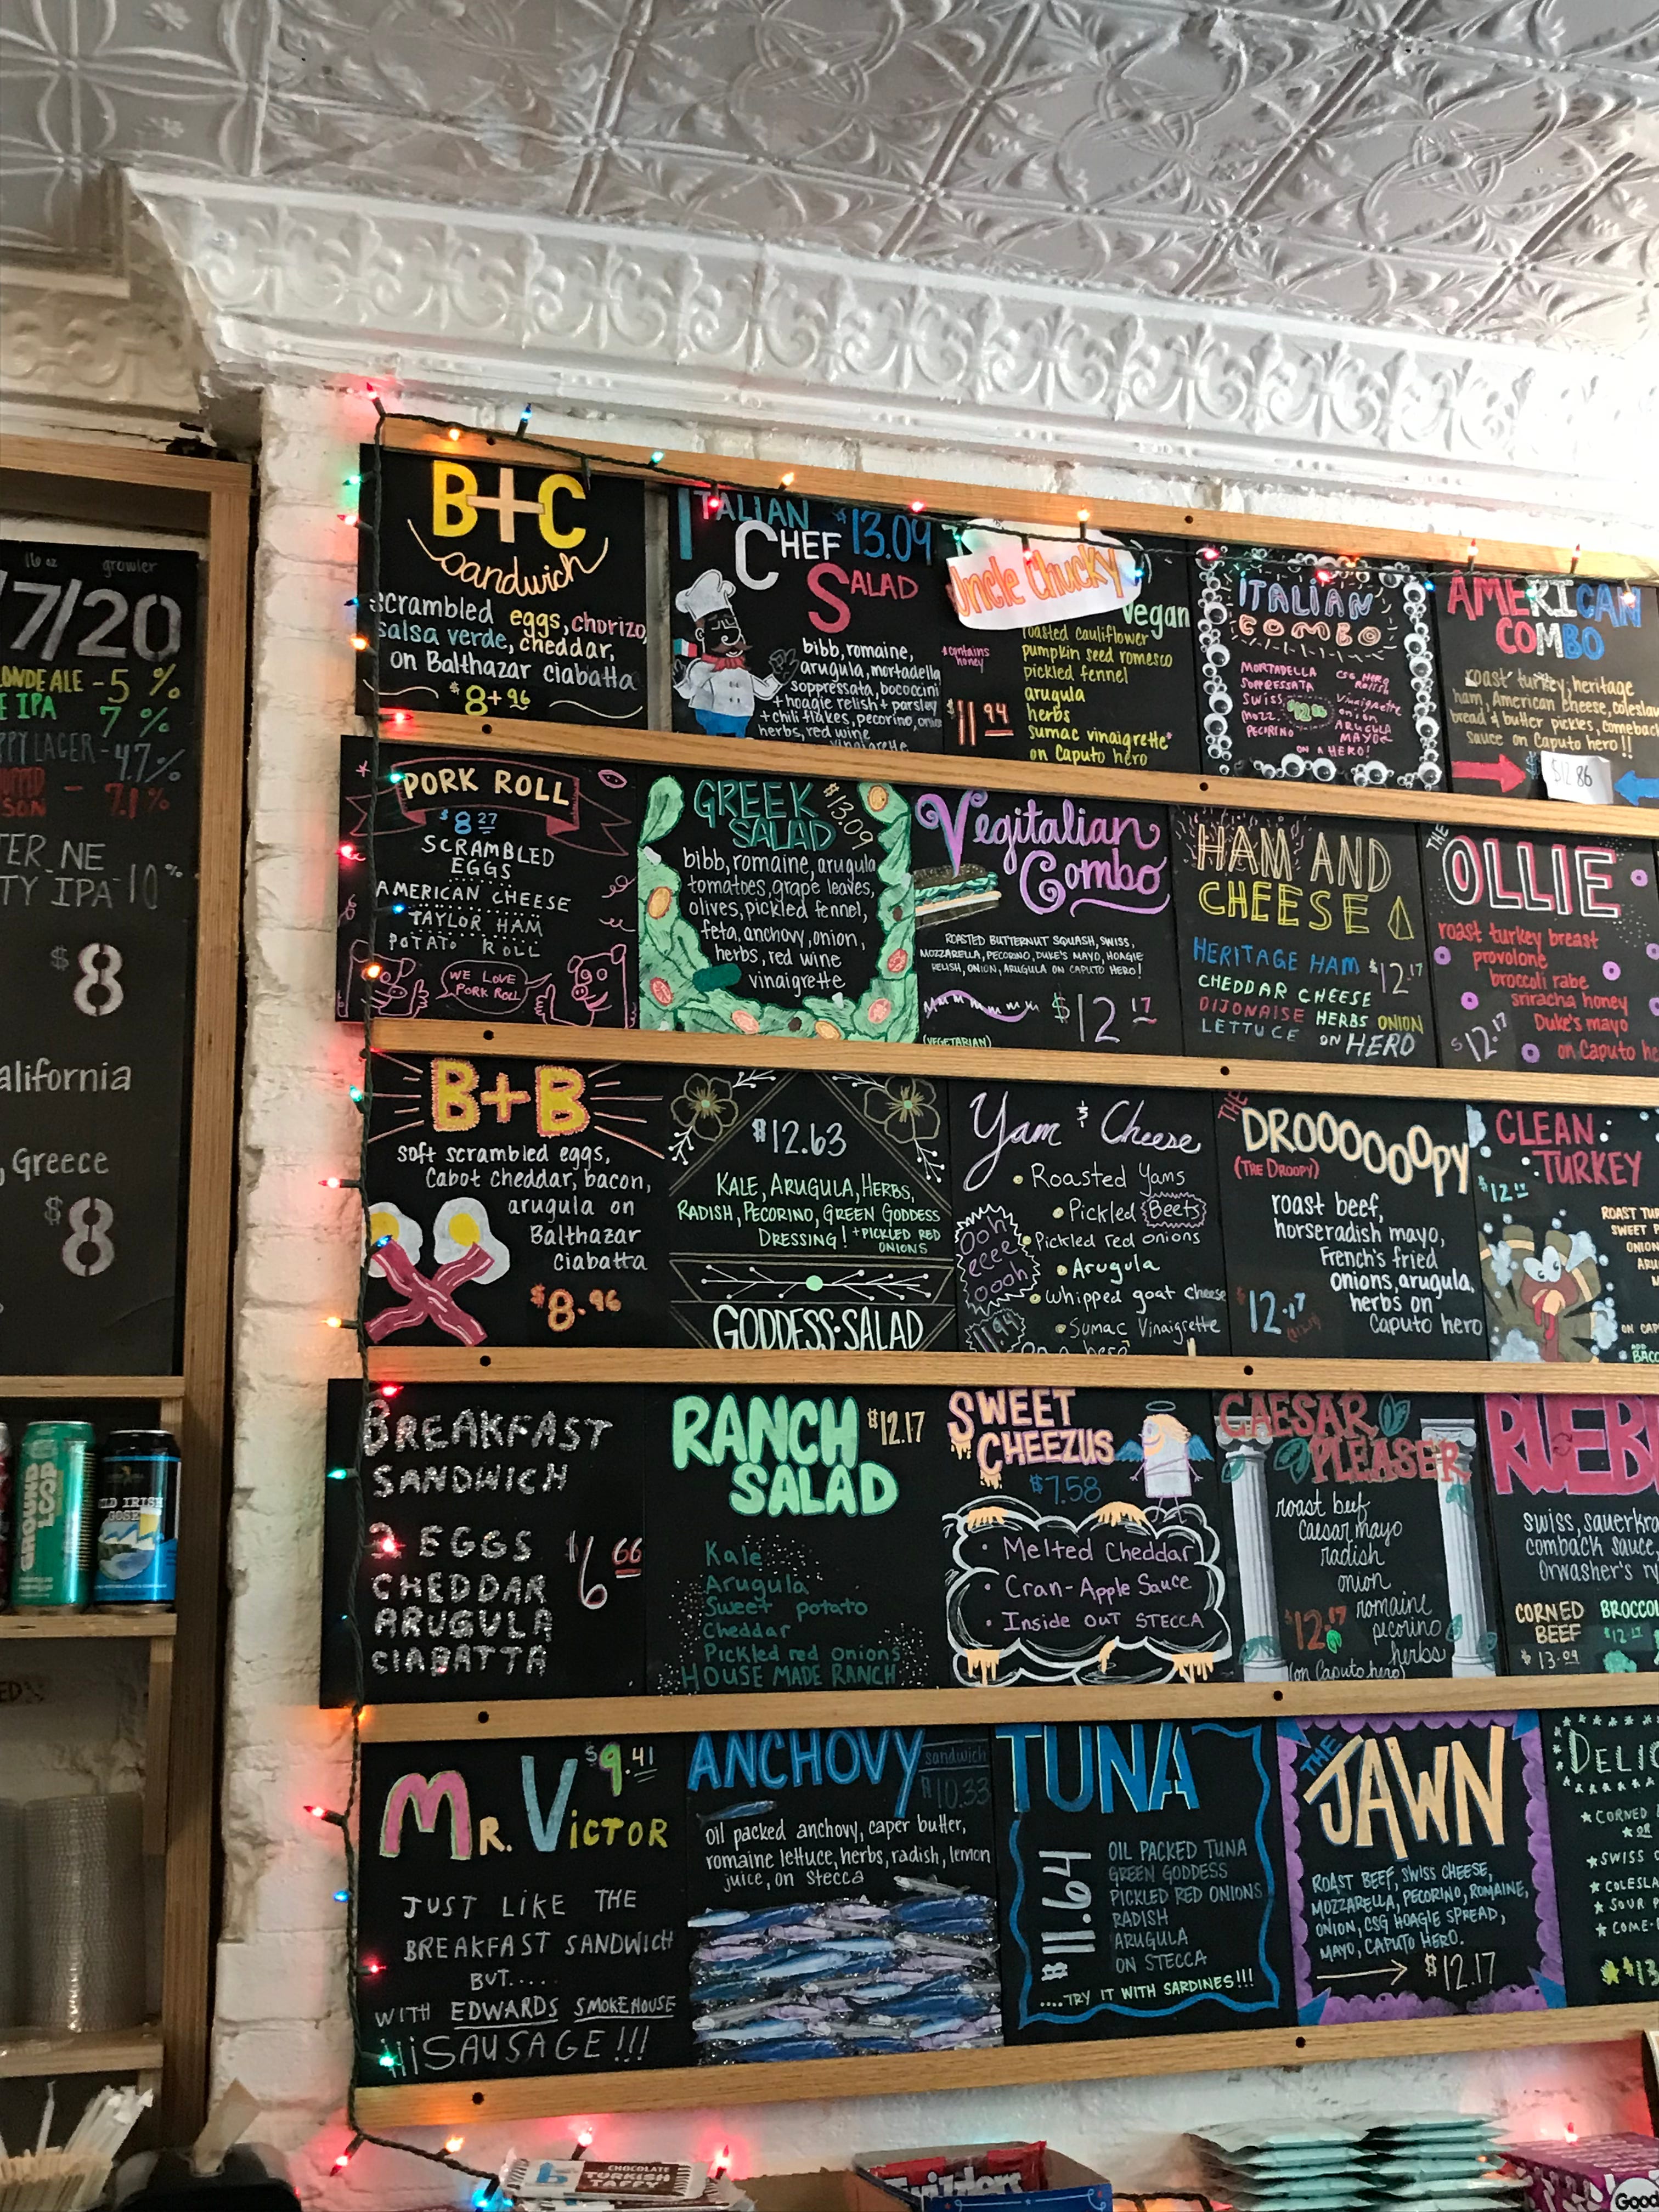 16 oz growler
7/20
ONDE ALE - 5 %
E IPA 7 %
PPY LAGER - 4.7%
7.1 %
ER NE
TY IPA - 10 %
$8
alifornia
, Greece
$8
GROUND
LD IRISH
GOSE
B+C
Sandwich
scrambled eggs, chorizo,
salsa verde, cheddar,
on Balthazar ciabatta
$8+96
ITALIAN $13.09
CHEF
SALAD
bibb, romaine,
arugula, mortadella
soppressata, bococcini
+hoagie relish + parsley
+chili flakes, pecorino, onion
herbs, red wine
vinaigrette
Uncle Chucky
Vegan
*contains
honey
roasted cauliflower
pumpkin seed romesco
pickled fennel
arugula
herbs
sumac vinaigrette*
on Caputo hero
$11 94
ITALIAN
COMBO
MORTADELLA
SOPPRESSATA
SWISS
MOZZ.
PECIRINO
CSG HERO
Relish
Vinaigrette
onion
ARUGULA
MAYO
ON A HERO!
AMERICAN
COMBO
roast turkey, heritage
ham, American cheese, coleslaw
bread & butter pickles, comeback
sauce on Caputo hero!!
$12.86
PORK ROLL
$8 27
SCRAMBLED
EGGS
AMERICAN CHEESE
TAYLOR HAM
POTATO ROLL
WE LOVE
PORK ROLL
GREEK $13.09
SALAD
bibb, romaine, arugula
tomatoes, grape leaves,
olives, pickled fennel,
feta, anchovy, onion,
herbs, red wine
vinaigrette
Vegitalian
Combo
ROASTED BUTTERNUT SQUASH, SWISS,
MOZZARELLA, PECORINO, DUKE'S MAYO, HOAGIE
RELISH, ONION, ARUGULA ON CAPUTO HERO!
$12 17
(VEGETARIAN)
HAM AND
CHEESE
HERITAGE HAM $12.17
CHEDDAR CHEESE
DIJONAISE HERBS ONION
LETTUCE ON HERO
THE
OLLIE
roast turkey breast
provolone
broccoli rabe
sriracha honey
Duke's mayo
$12.17 on Caputo he
B+B
soft scrambled eggs,
Cabot cheddar, bacon,
arugula on
Balthazar
ciabatta
$8.96
$12.63
KALE, ARUGULA, HERBS,
RADISH, PECORINO, GREEN GODDESS
DRESSING! +PICKLED RED
ONIONS
GODDESS·SALAD
Yam & Cheese
• Roasted Yams
• Pickled Beets
• Pickled red onions
• Arugula
• whipped goat cheese
• Sumac Vinaigrette
On a hero
Ooh
eeee
oooh
11.94
THE
DROOOOOOPY
(THE DROOPY)
roast beef,
horseradish mayo,
French's fried
onions, arugula,
herbs on
Caputo hero
$12.17
CLEAN
TURKEY
$12
ROAST TUR
SWEET P
ONION
ARU
ON CAP
ADD
BACO
BREAKFAST
SANDWICH
2 EGGS
CHEDDAR
ARUGULA
CIABATTA
$6 66
RANCH $12.17
SALAD
Kale
Arugula
Sweet potato
Cheddar
Pickled red onions
HOUSE MADE RANCH
SWEET
CHEEZUS
$7.58
• Melted Cheddar
• Cran-Apple Sauce
• Inside OUT STECCA
CAESAR
PLEASER
roast beef
Caesar mayo
radish
onion
romaine
pecorino
herbs
$12.17
(on Caputo hero)
RUEB
swiss, sauerkra
comback sauce,
Orwasher's ry
CORNED
BEEF
$13.09
BROCCOL
$12.17
MR. VICTOR
$9.41
JUST LIKE THE
BREAKFAST SANDWICH
BUT.....
WITH EDWARDS SMOKEHOUSE
SAUSAGE!!!
ANCHOVY
sandwich
$10.33
oil packed anchovy, caper butter,
romaine lettuce, herbs, radish, lemon
juice, on stecca
TUNA
$11.94
OIL PACKED TUNA
GREEN GODDESS
PICKLED RED ONIONS
RADISH
ARUGULA
ON STECCA
....TRY IT WITH SARDINES!!!
THE
JAWN
ROAST BEEF, SWISS CHEESE,
MOZZARELLA, PECORINO, ROMAINE,
ONION, CSG HOAGIE SPREAD,
MAYO, CAPUTO HERO.
$12.17
DELIC
★CORNED
★OR
★SWISS
★COLESLA
★SOUR P
★COME-
★$13
CHOCOLATE
TURKISH
TAFFY
Twizzlers
Good